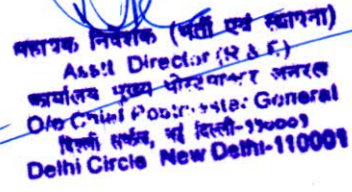 सहायक निदेशक (भर्ती एवं स्थापना)
Asstt Director (R & E)
कार्यालय मुख्य पोस्टमास्टर जनरल
O/o Chief Postmaster General
दिल्ली सर्कल, नई दिल्ली-110001
Delhi Circle New Delhi-110001